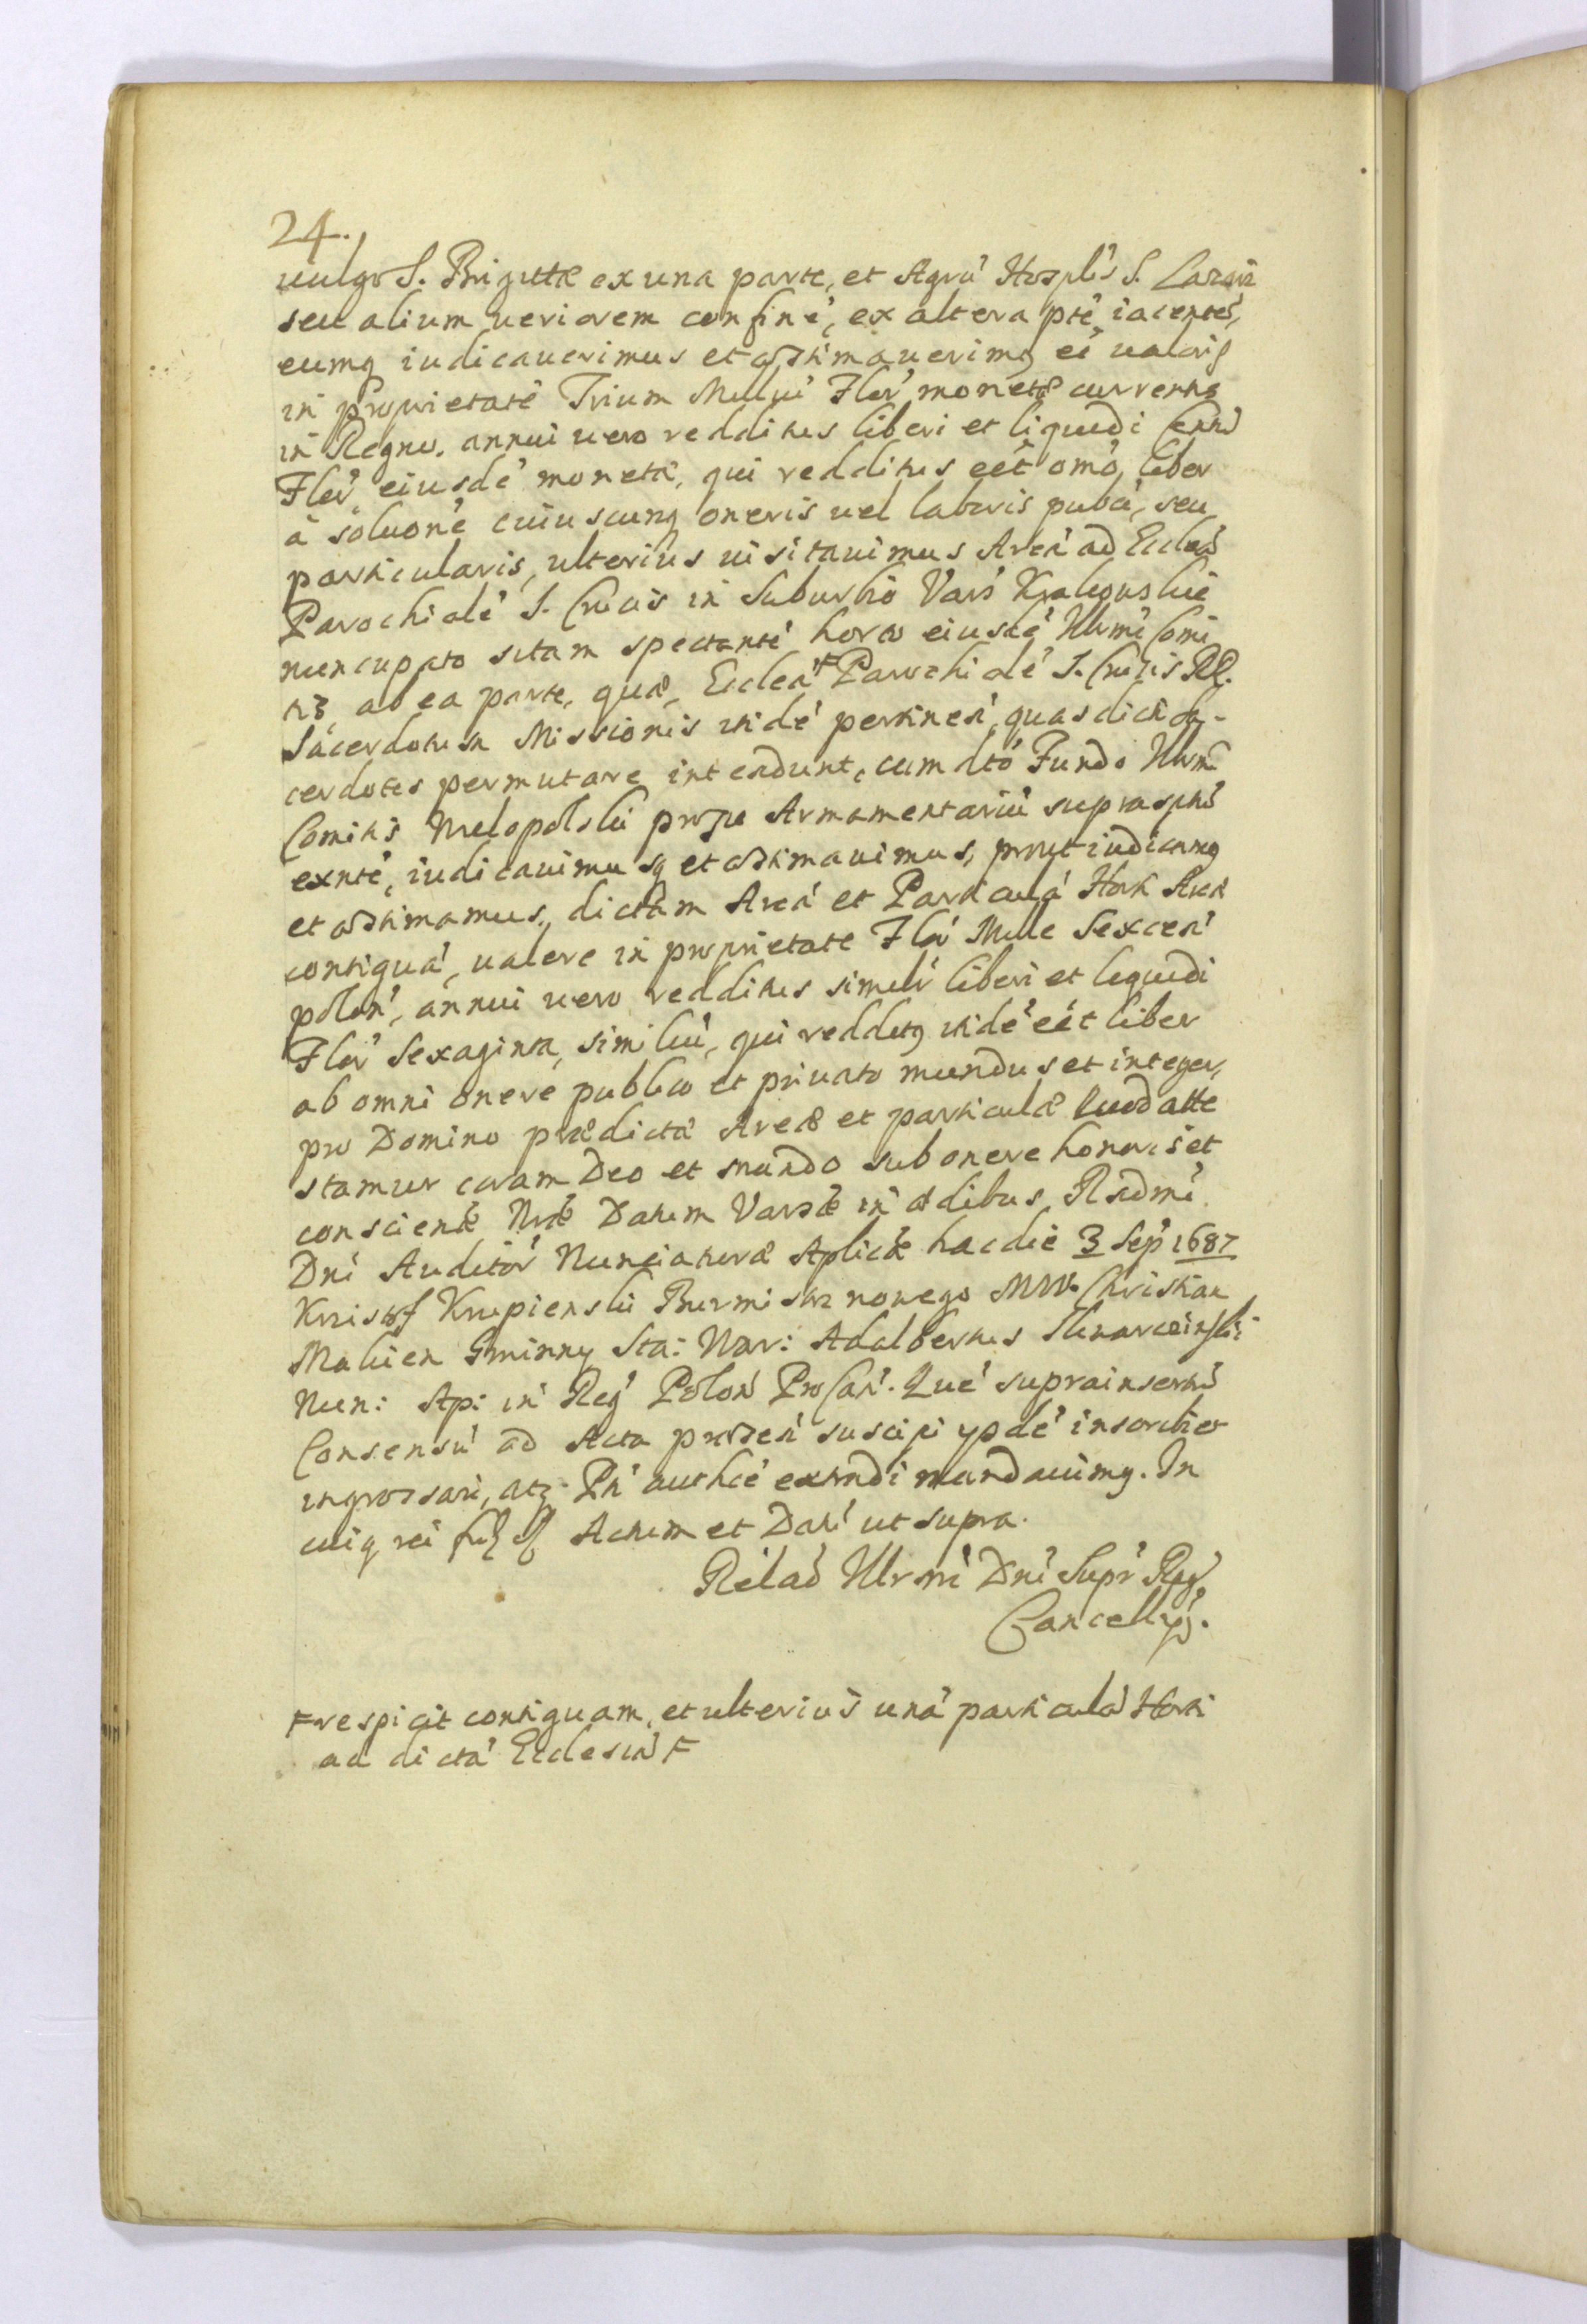 24.
uulgo S. Brigittæ ex una parte, et Agrũ Hosplis S. Lazari
seu alium ueriorem confinẽ, ex altera ptẽ iacentẽ,
eumq iudicauerimus et æstimauerimq eẽ ualoris
in proprietatẽ Trium Milliũ Flor monetæ currentis
in Regno. annui uero redditus liberi et liquidi Centũ
Flor eiusdẽ monetæ, qui redditus eẽt omõ liber
à soluone cuiuscunq oneris uel laboris publi, seu
particularis, ulterius uisitauimus Areã ad Ecclam
Parochialẽ S. Crucis in Suburbio Vars Krakouskie
nuncupato sitam spectantẽ horto eiusdẽ Illrmi Comi
tis, ab ea parte, quæ, Eccleã F Parochialẽ S. Crucis RR.
Sacerdotum Missionis itidẽ pertineñ, quas dicti Sa-
cerdotes permutare intendunt, cum dto Fundo Illrmi
Comitis Wielopolski prope Armamentariũ suprascriptũ
exntẽ, iudicauimusq et æstimauimus, prout iudicamq
et æstimamus, dictam Areã et Particulã Horti Areæ
contiguã, ualere in proprietate Flor Mille Sexceñ
poloñ, annui uero redditus simili liberi et liquidi
Flor Sexaginta, similiũ, qui redditq itidẽ eẽt liber
ab omni onere publico et priuato mundus et integer,
pro Domino prædictæ Areæ et particulæ Quod atte
stamur coram Deo et mundo sub onere honoris et
conscientiæ Nræ Datum Varsæ in ædibus Rndmi
Dni Auditor Nunciaturæ Aplicæ hac die 3 Sep 1687
Krzistof Krupienski Burmistrz nowego MW. Christian
Mahien Gminny Sta: War: Adalbertus Skwarczinski
Nun: Ap: in Reg Poloñ ProCan. Quẽ suprainsertũ
Consensũ ad Acta præseñ suscipi ypdẽ inscribi et
ingrossari, atq Pñ authcẽ extradi mandauimq. In
cuiq rei fidẽ Actum et Datũ ut supra.
Relað Illrmi Dni Supr Reg
Cancellrij.
F respicit contiguam, et ulterius unã particulã Horti
ad dictã Ecclesiã F